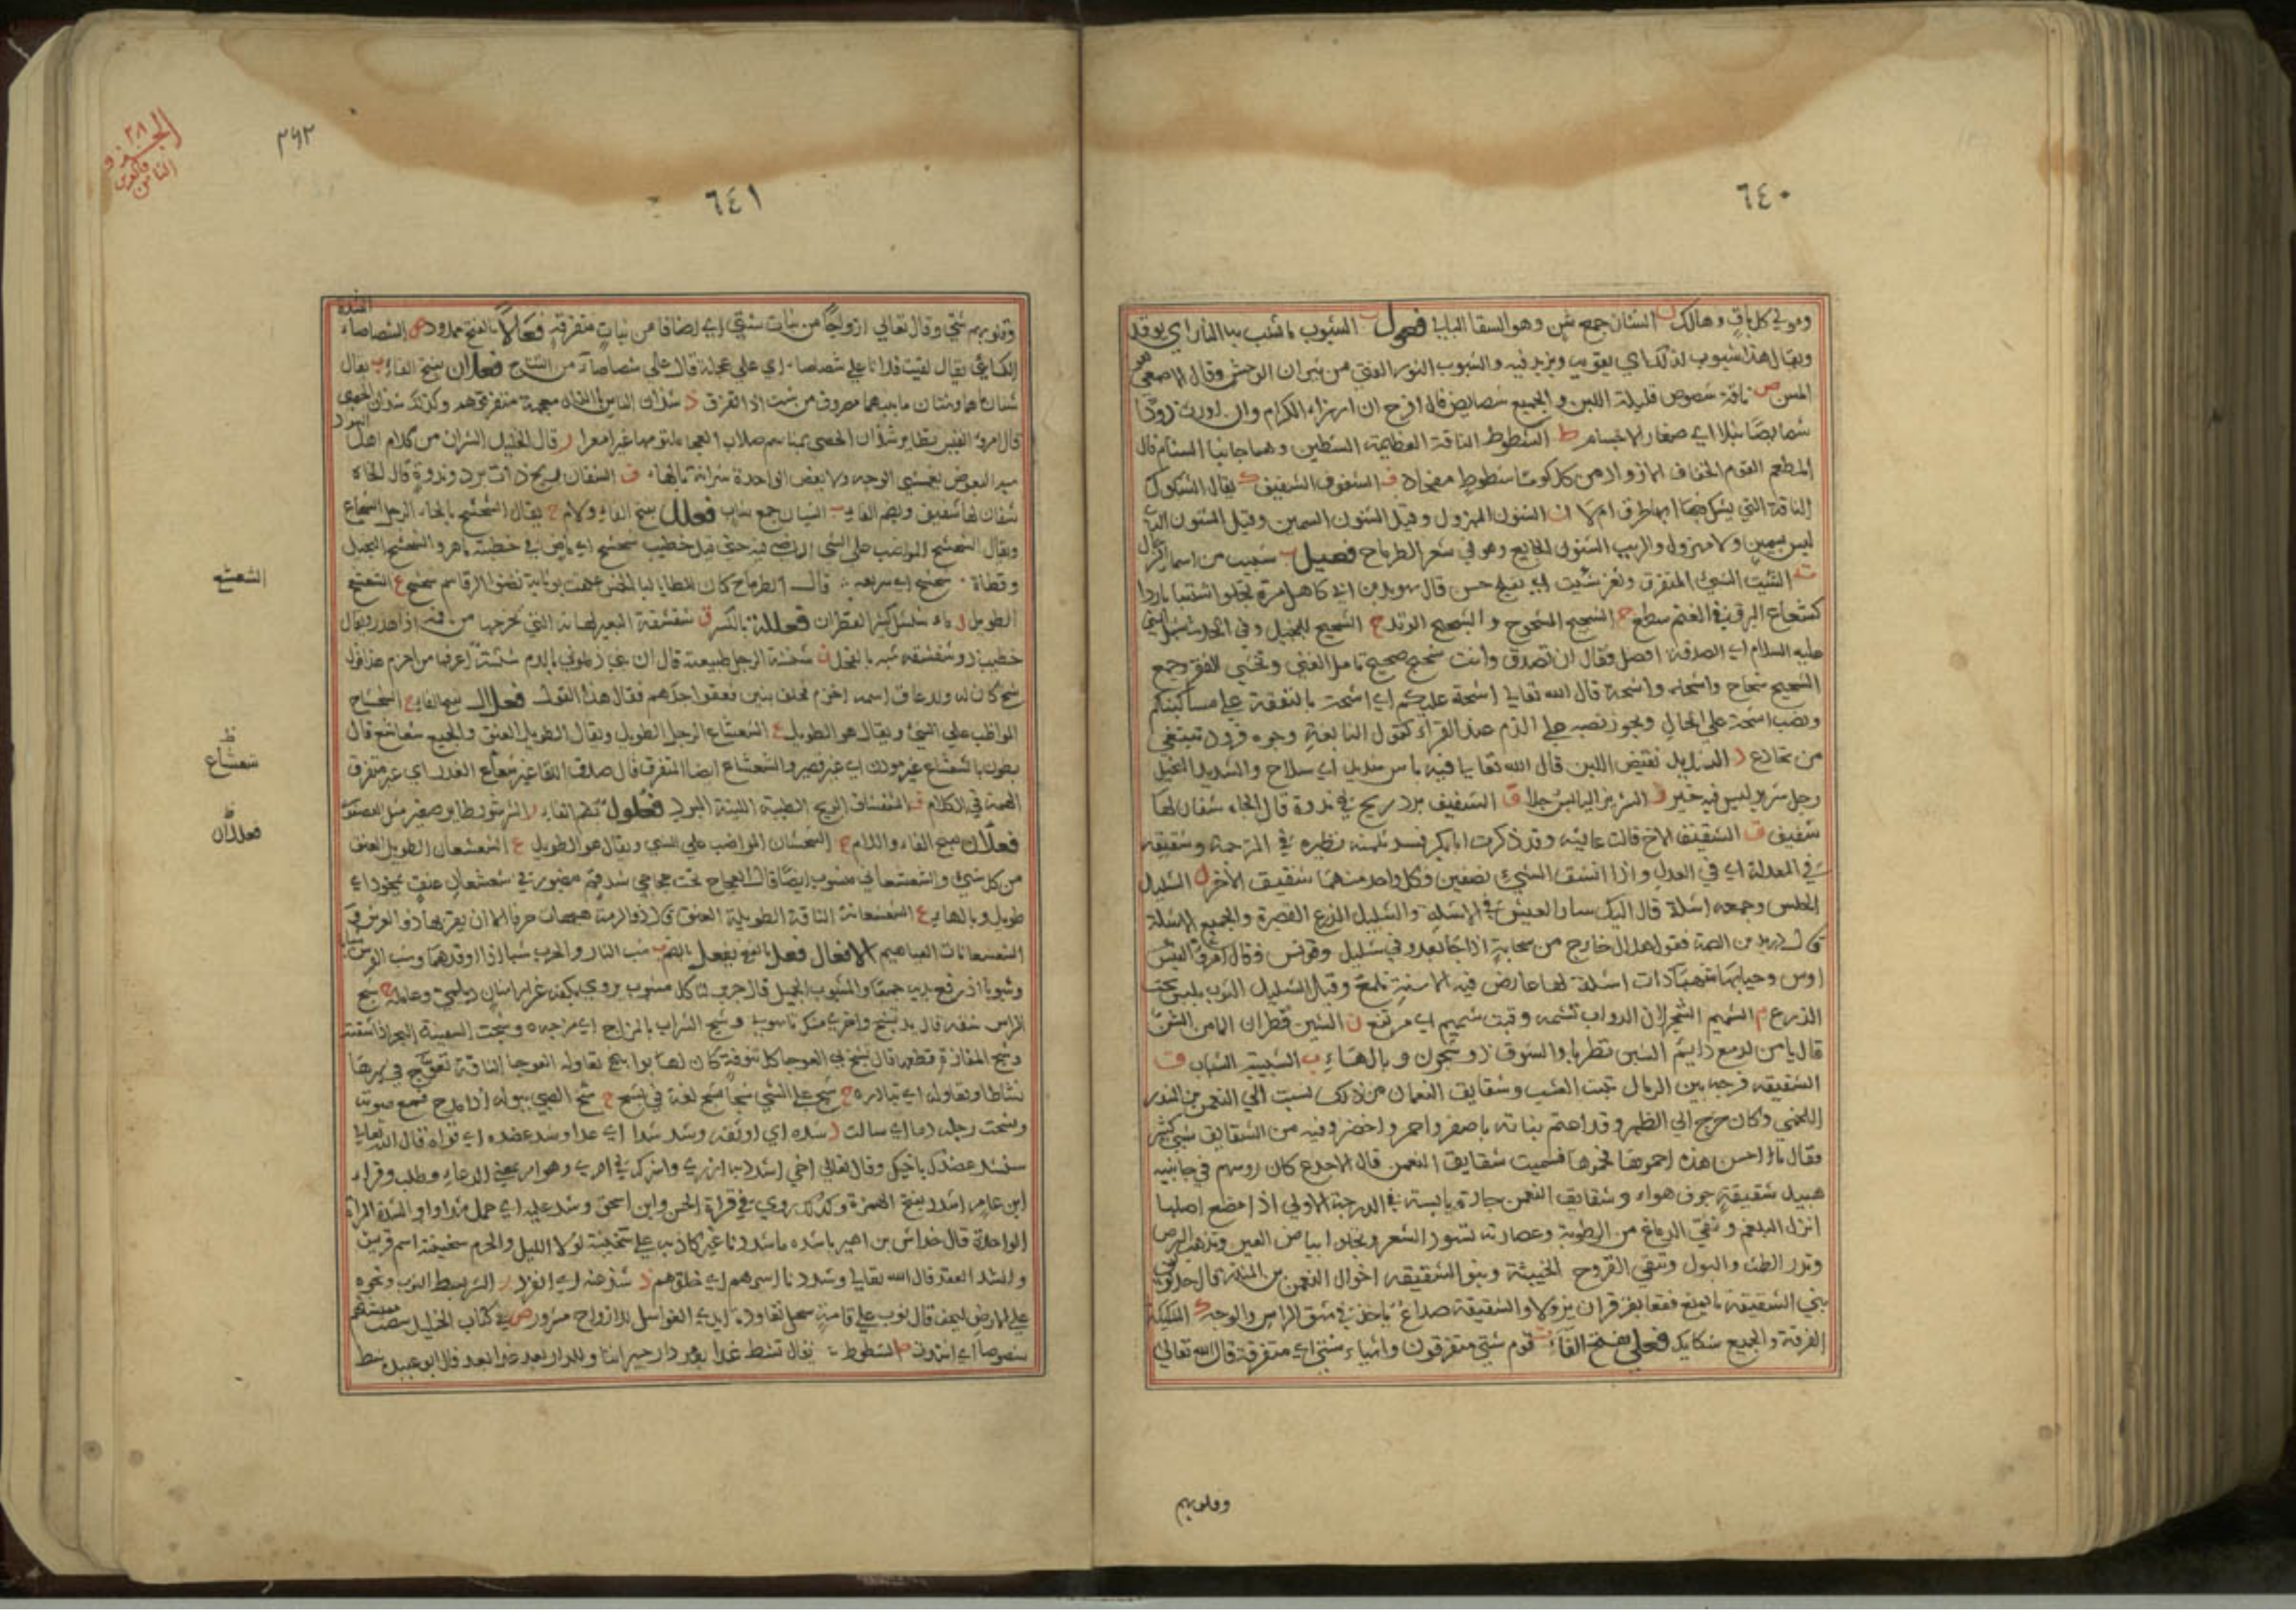 ٦٤٠
ومولى كل باق وهالك ن الشنان جمع شن وهو السقا البالي فعول ب الشبوب ما تشب به النار اي يوقد
ويقال هذا شبوب لذلك اي يقويه ويزيد فيه والشبوب الثور الفتي من ثيران الوحش وقال الاصمعي هو
المسن ص ناقة شصوص قليلة اللبن والجميع شصايص قال افرح ان ارزاء الكرام وان اورث ذودا
شصايصا نبلا اي صغار الاجسام ط الشطوط الناقة العظيمة الشطين وهما جانبا السنام قال
المطعم القوم الخفاف الازواد من كل كوماء شطوط مفحاد ف الشفوف الشفيف ك يقال الشكوك
الناقة التي يشك فيها ابها طرق ام لا ن الشنون المهزول وقيل الشنون السمين وقيل الشنون الذي
ليس بسمين ولا مهزول والذيب الشنون الجايع وهو في شعر الطرماح فعيل ب شبيب من اسماء الرجال
ت الشتيت الشيء المتفرق وثغر شتيت اي مفلج حسن قال سويد بن ابي كاهل حرة تجلو شتيتا باردا
كشعاع البرق في الغيم سطع ج الشجيج المشجوج والشجيج الوتد ح الشحيح البخيل وفي الحديث سيل النبي
عليه السلام اي الصدقة افضل فقال ان تصدق وانت شحيح صحيح تامل الغنى وتخشى الفقر وجمع
الشحيح شحاح واشحاء واشحة قال الله تعالى اشحة عليكم اي اشحة بالنفقة على مساكينكم
ونصب اشحة على الحال ويجوز نصبه على الذم عند الفراء كقول النابغة وجوه قرود تبتغي
من تخادع د الشديد نقيض اللين قال الله تعالى فيه باس شديد اي سلاح والشديد البخيل
رجل شرير ليس فيه خير ز الشزيز اليابس جدا ف الشفيف برد ريح في ندوة قال الجاه شفان لها
شفيف ق الشقيق الاخ قالت عائشة وقد ذكرت ابا بكر فسد ثلمته نظيره في المرحمة وشقيقه
في المعدلة اي في العدل واذا انشق الشيء نصفين فكل واحد منهما شقيق الاخر ل الشليل
الحلس وجمعه اشلة قال اليك سار العيس في الاشلة والشليل الدرع القصيرة والجميع الاشلة
قال دريد بن الصمة فقولا هلال خارج من سحابة اذا جا يعدو في شليل وقونس وقال امرؤ القيس
اوس وحيا بها شهباء ذات اشلة لها عارض فيه الاسنة تلمع وقيل الشليل الثوب يلبس تحت
الدرع م الشميم الشم لان الدواب تشمه وقتب شميم اي مرتفع ن الشنين قطران الماء من الشن
قال يا من لدمع دايم الشنين تطربا والشوق ذو شجون و بالهاء ب الشبيبة الشباب ق
الشقيقة فرجة بين الرمال تنبت العشب وشقايق النعمان من ذلك نسبت الى النعمن بن المنذر
اللخمي وكان خرج الى الظهر وقد اعتم بنباته باصفر واحمر واخضر وفيه من الشقايق شيء كثير
فقال ما احسن هذه احموها فحموها فسميت شقايق النعمن قال الاجدع كان رووسهم في جانبيه
هبيد شقيقة جوف هواء وشقايق النعمن حارة يابسة في الدرجة الاولى اذا مضغ اصلها
انزل البلغم ونقى الدماغ من الرطوبة وعصارته تسود الشعر وتجلو ابياض العين وتذهب البرص
وتدر الطمث والبول وتنقي القروح الخبيثة وبنو الشقيقة اخوال النعمن بن المنذر قال
بني الشقيقة ما يمنع فقعا بقرقران يزولا والشقيقة صداع ياخذ في شق الراس والوجه ك الشكيكة
الفرقة والجميع شكايك فعلى بفتح الفاء ت قوم شتى متفرقون واشياء شتى اي متفرقة قال الله تعالى
وقلوبهم
٦٤١
٣٦٢
٣٨
الجزو
الثامن
والعشرون
وقلوبهم شتى وقال تعالى ازواجا من نبات شتى اي اصنافا من نبات متفرقة فعالا بالفتح ممدود ص الشصاصاء الشدة
يقال لقيت فلانا على شصاصاء اي على عجلة قال على شصاصاء من النتاج فعلان بفتح الفاء ت يقال
شتان ما هما وشتان ما بينهما مصروف من شت اذا تفرق ذ شذان الناس بالذال معجمة متفرقوهم وكذلك شذان الحصى
قال امرؤ القيس تطاير شذان الحصى بمناسم صلاب العجى ملثومها غير امعرا ر قال الخليل الشران من كلام اهل السواد
شبه البعوض يغشى الوجه ولا يعض الواحدة شرانة بالهاء ف الشفان الريح ذات برد وندوة قال الجاه
شفان لها شفيف وبضم الفاء ب الشبان جمع شاب فعلل بفتح الفاء واللام ح يقال الشحشح بالحاء الرجل الشجاع
ويقال الشحشح المواظب على الشيء الماضي فيه حتى قيل خطيب شحشح اي ماض في خطبته ماهر والشحشح البخيل
وقطاة شحشح اي سريعة قال الطرماح كان المطايا ليلة الخمس علقت بوثابة تنضو الرواسم شحشح ع الشعشع
الطويل ل ماء شلشل كثير القطران فعللة بالكسر ق شقشقة البعير لهاته التي تخرجها من فيه اذا هدر ويقال
خطيب ذو شقشقة شبه بالفحل ن شنشنة الرجل طبيعته قال ان بني زملوني بالدم شنشنة اعرفها من اخزم هذا قول
شيخ كان له ولد عاق اسمه اخزم فخلف بنين فعقوا جدهم فقال هذا القول فعلال بفتح الفاء ح الشحشاح
المواظب على الشيء ويقال هو الطويل ع الشعشاع الرجل الطويل ويقال الطويل العنق والجميع شعاشع قال
يطون بالشعشاع غير مودن اي غير قصير والشعشاع ايضا المتفرق قال صدق اللقاء غير شعشاع الغدر اي غير متفرق
الهمة في الكلام ف الشفشاف الريح الطيبة اللينة البرد فعلول بضم الفاء ر الشرشور طاير صغير مثل العصفور
فعللان بفتح الفاء واللام ح الشحشحان المواظب على الشيء ويقال هو الطويل ع الشعشعان الطويل العنق
من كل شيء والشعشعاني منسوب ايضا قال العجاج تحت حجاجي شدقم مضبور في شعشعان عنق يمخور اي
طويل وبالهاء ع الشعشعانة الناقة الطويلة العنق قال ذو الرمة هيهات خرقاء الا ان يقربها ذو العرش و
الشعشعانات العياهيم الافعال فعل بالفتح يفعل بالضم ب شب النار والحرب شبا اذا اوقدهما وشب الفرس شبابا
وشبوبا اذا رفع يديه جميعا والمشبوب الجميل
الراس شقه
وشج المفازة قطعها قال تشج بي العوجاء كل تنوفة كان لها بوا بنهي تغاوله العوجا الناقة تعوج في سيرها
نشاطا وتغاوله اي تبادره ح شح على الشيء شحا اشح لغة في اشح خ شخ الصبي ببوله اذا
وشخت رجله دما اي سالت د شده اي اوثقه وشد شدا اي عدا وشد عضده اي قواه قال الله تعالى
سنشد عضدك باخيك وقال تعالى اخي اشدد به ازري واشركه في امري وهو امر بمعنى الدعاء وطلب وقراء
ابن عامر اشدد بفتح الهمزة وكذلك روي في قراءة الحسن وابن اسحق وشد عليه اي حمل شدا والشدة المرة
الواحدة قال خداش بن زهير يا شدة ما شددنا غير كاذبة على سخينة لولا الليل والحرم سخينة اسم قريش
والشد العقد قال الله تعالى وشددنا اسرهم اي خلقهم ذ شذ عنه اي انفرد ر الشر بسط الثوب ونحوه
على الارض ليجف قال ثوب على قامة سحل تعاوده ايدي الغواسل للارواح مشرور ص في كتاب الخليل شصت معيشتهم
شصوصا اي اشتدت ط الشطوط البعد يقال تشط غدا دار جيراننا وللدار بعد غد ابعد قال ابو عبيد شط
الشعشع
ظ
شعشاع
ظ
فعللان